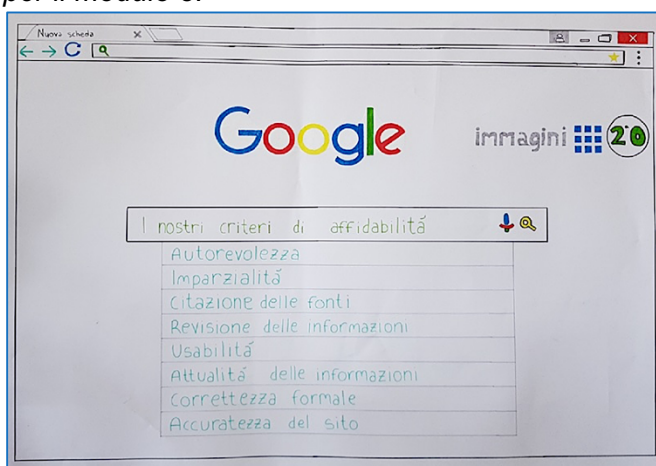 per il modulo 3.
Nuova scheda
Google
immagini
2°0
I nostri criteri di affidabilitá
Autorevolezza
Imparzialitá
Citazione delle fonti
Revisione delle informazioni
Usabilitá
Attualitá delle informazioni
Correttezza formale
Accuratezza del sito